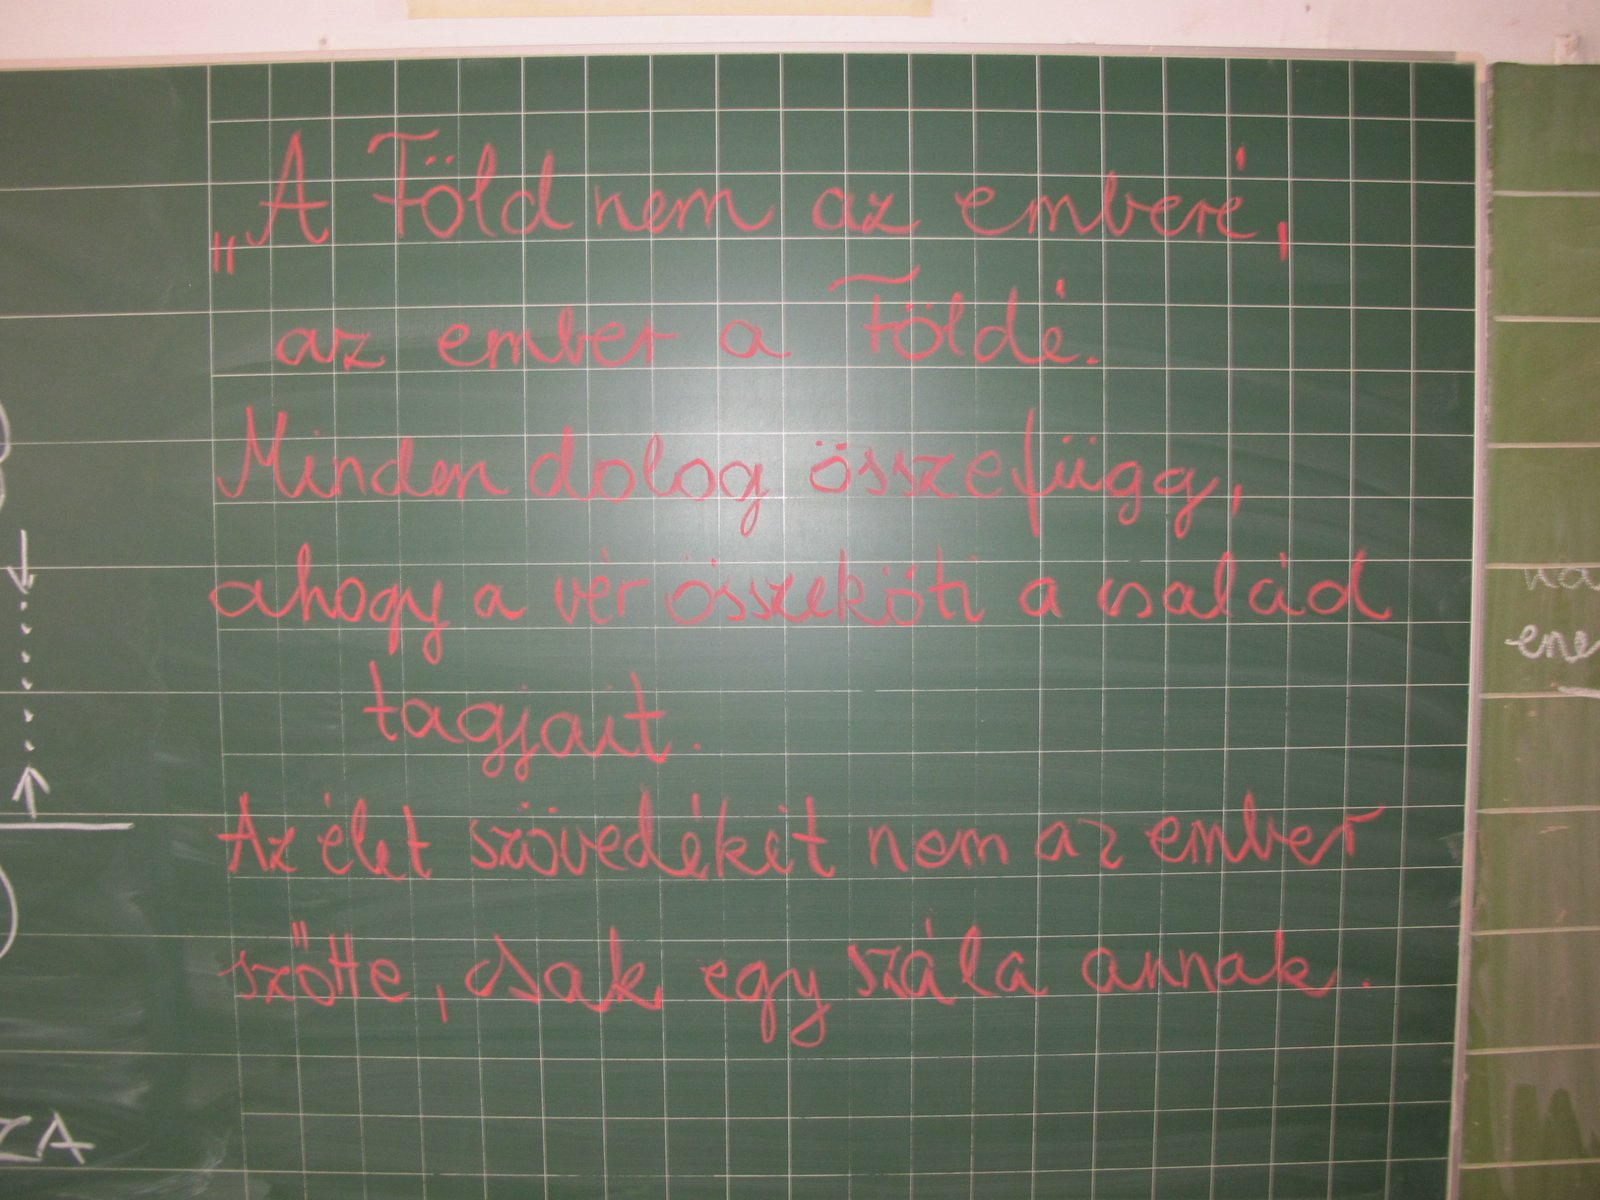 „A Föld nem az emberé,
az ember a Földé.
Minden dolog összefügg,
ahogy a vér összeköti a család
tagjait.
Az élet szövedékét nem az ember
szőtte, csak egy szála annak.
ZA